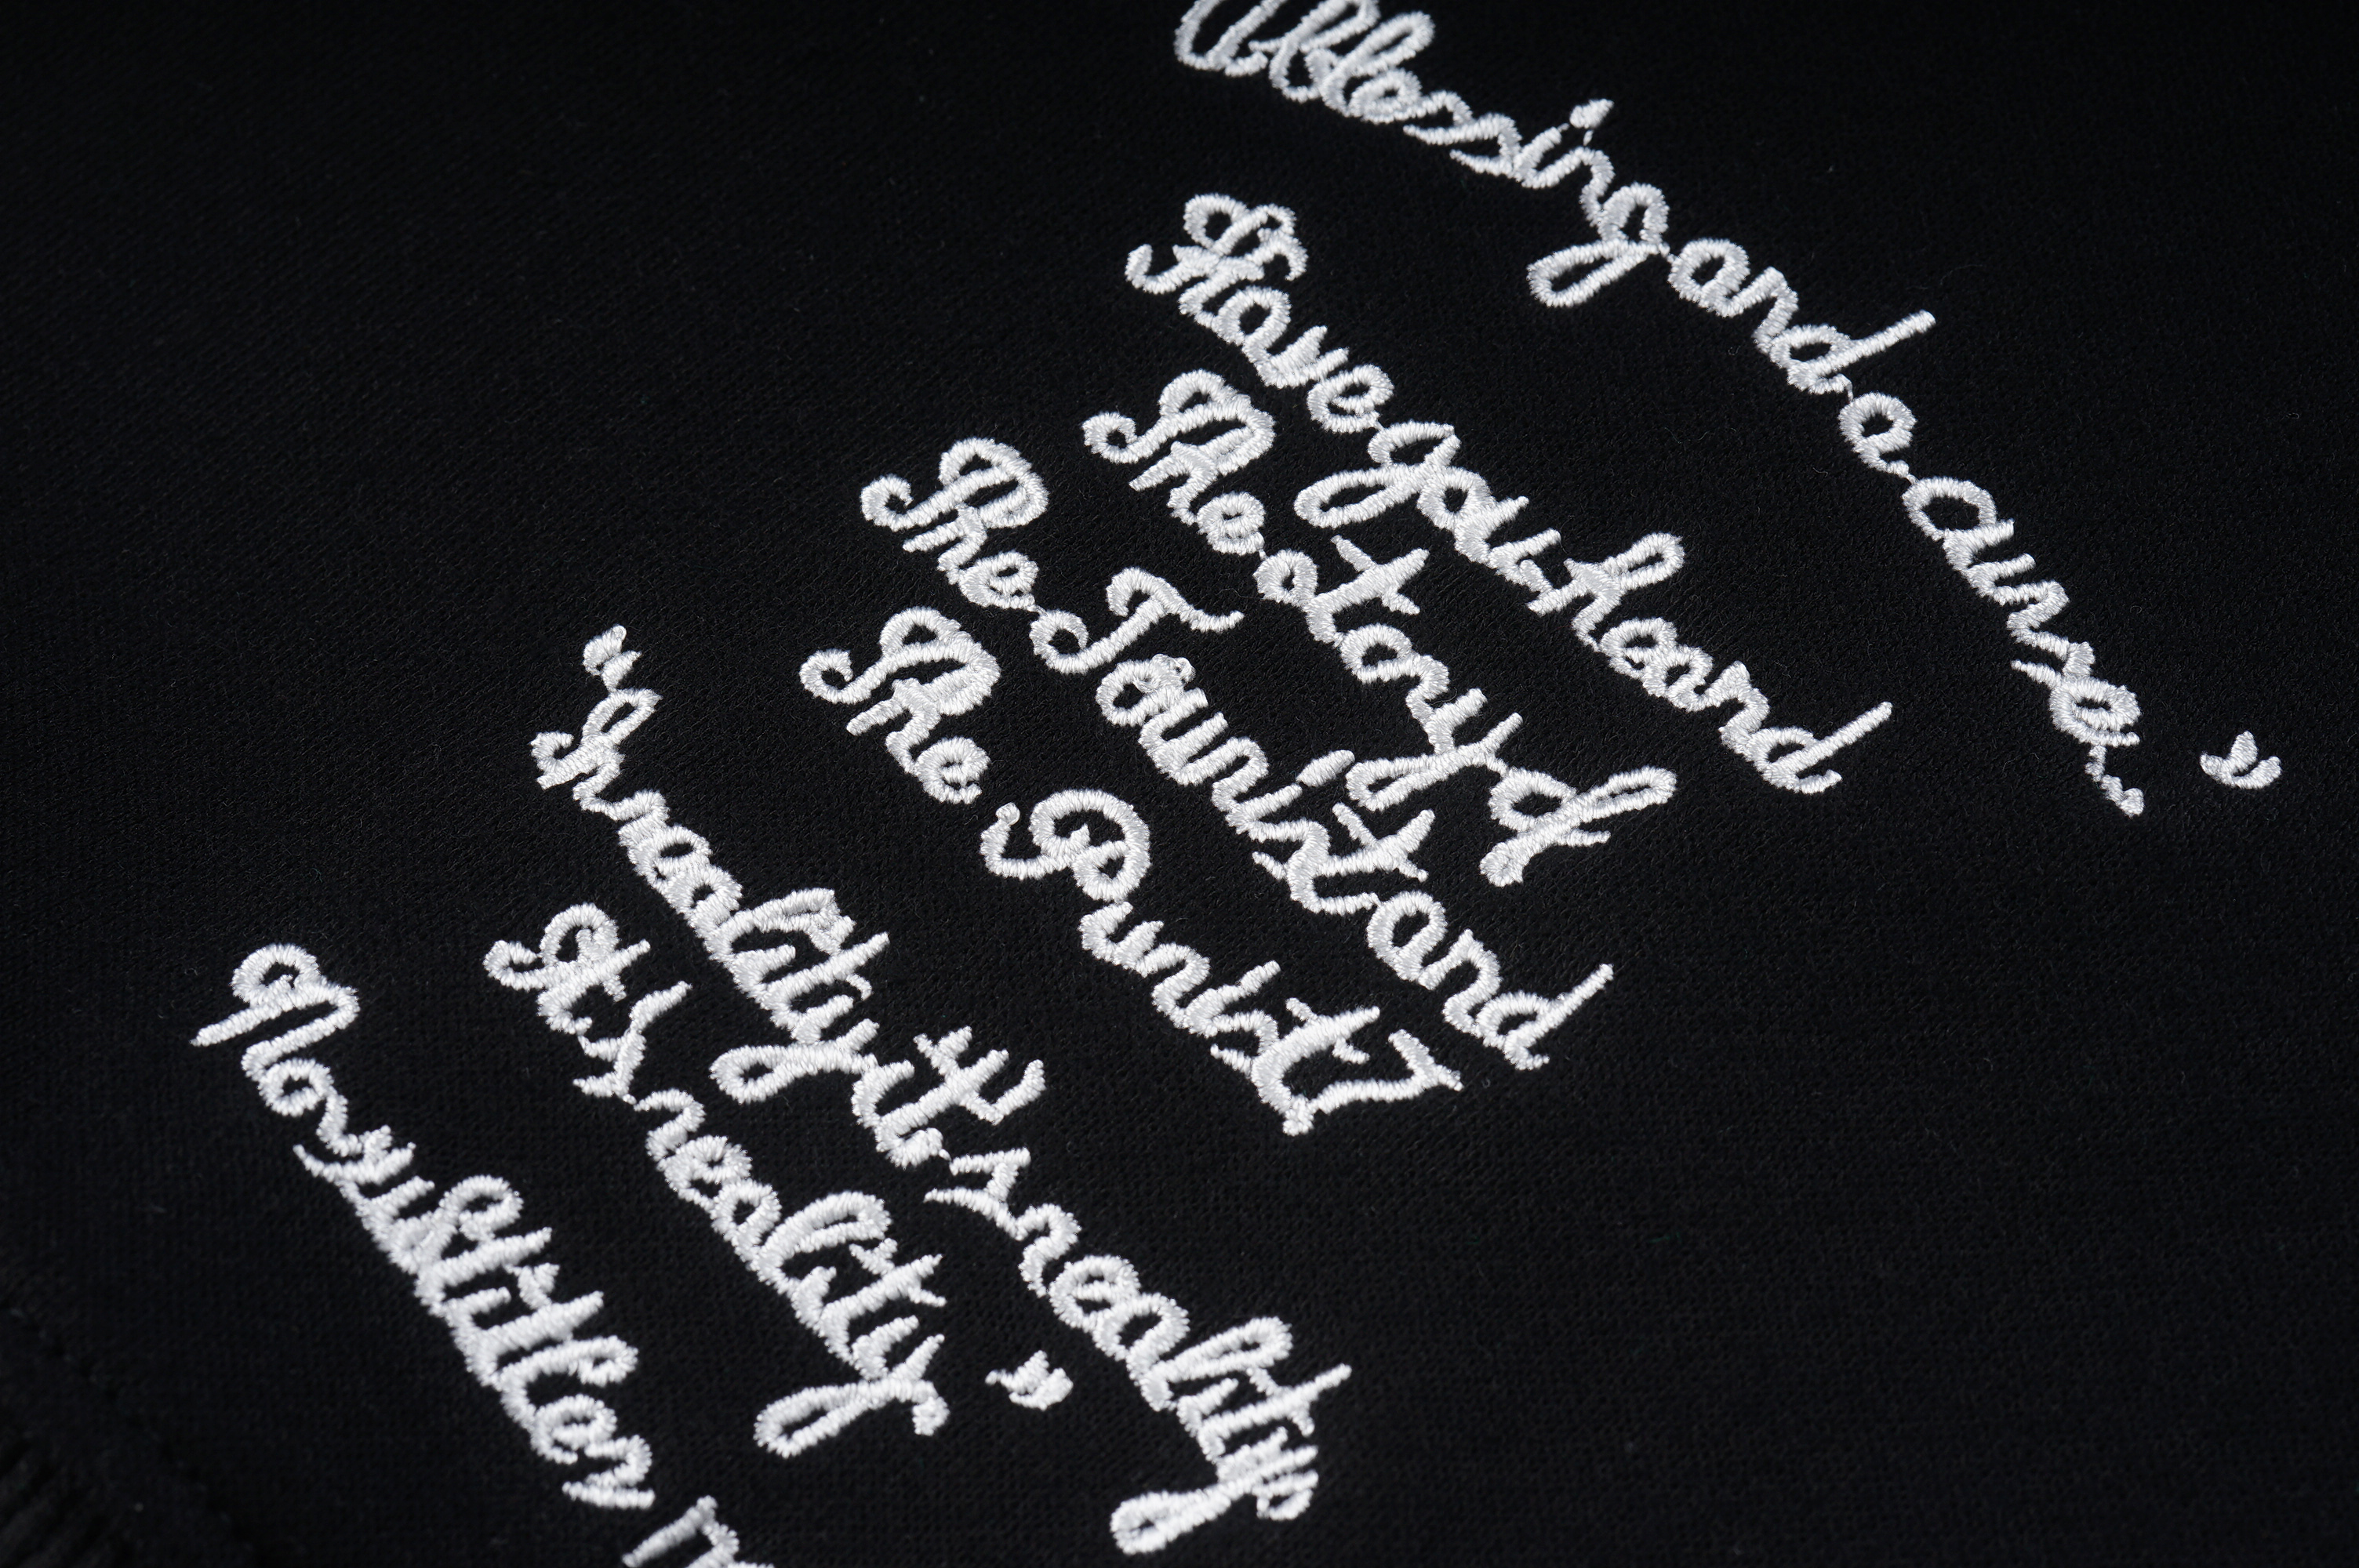 A blessing and a curse. ”
Have you heard
The story of
The Tourist and
The Purist?
“In reality it's reality
It's reality ”
No subtitles